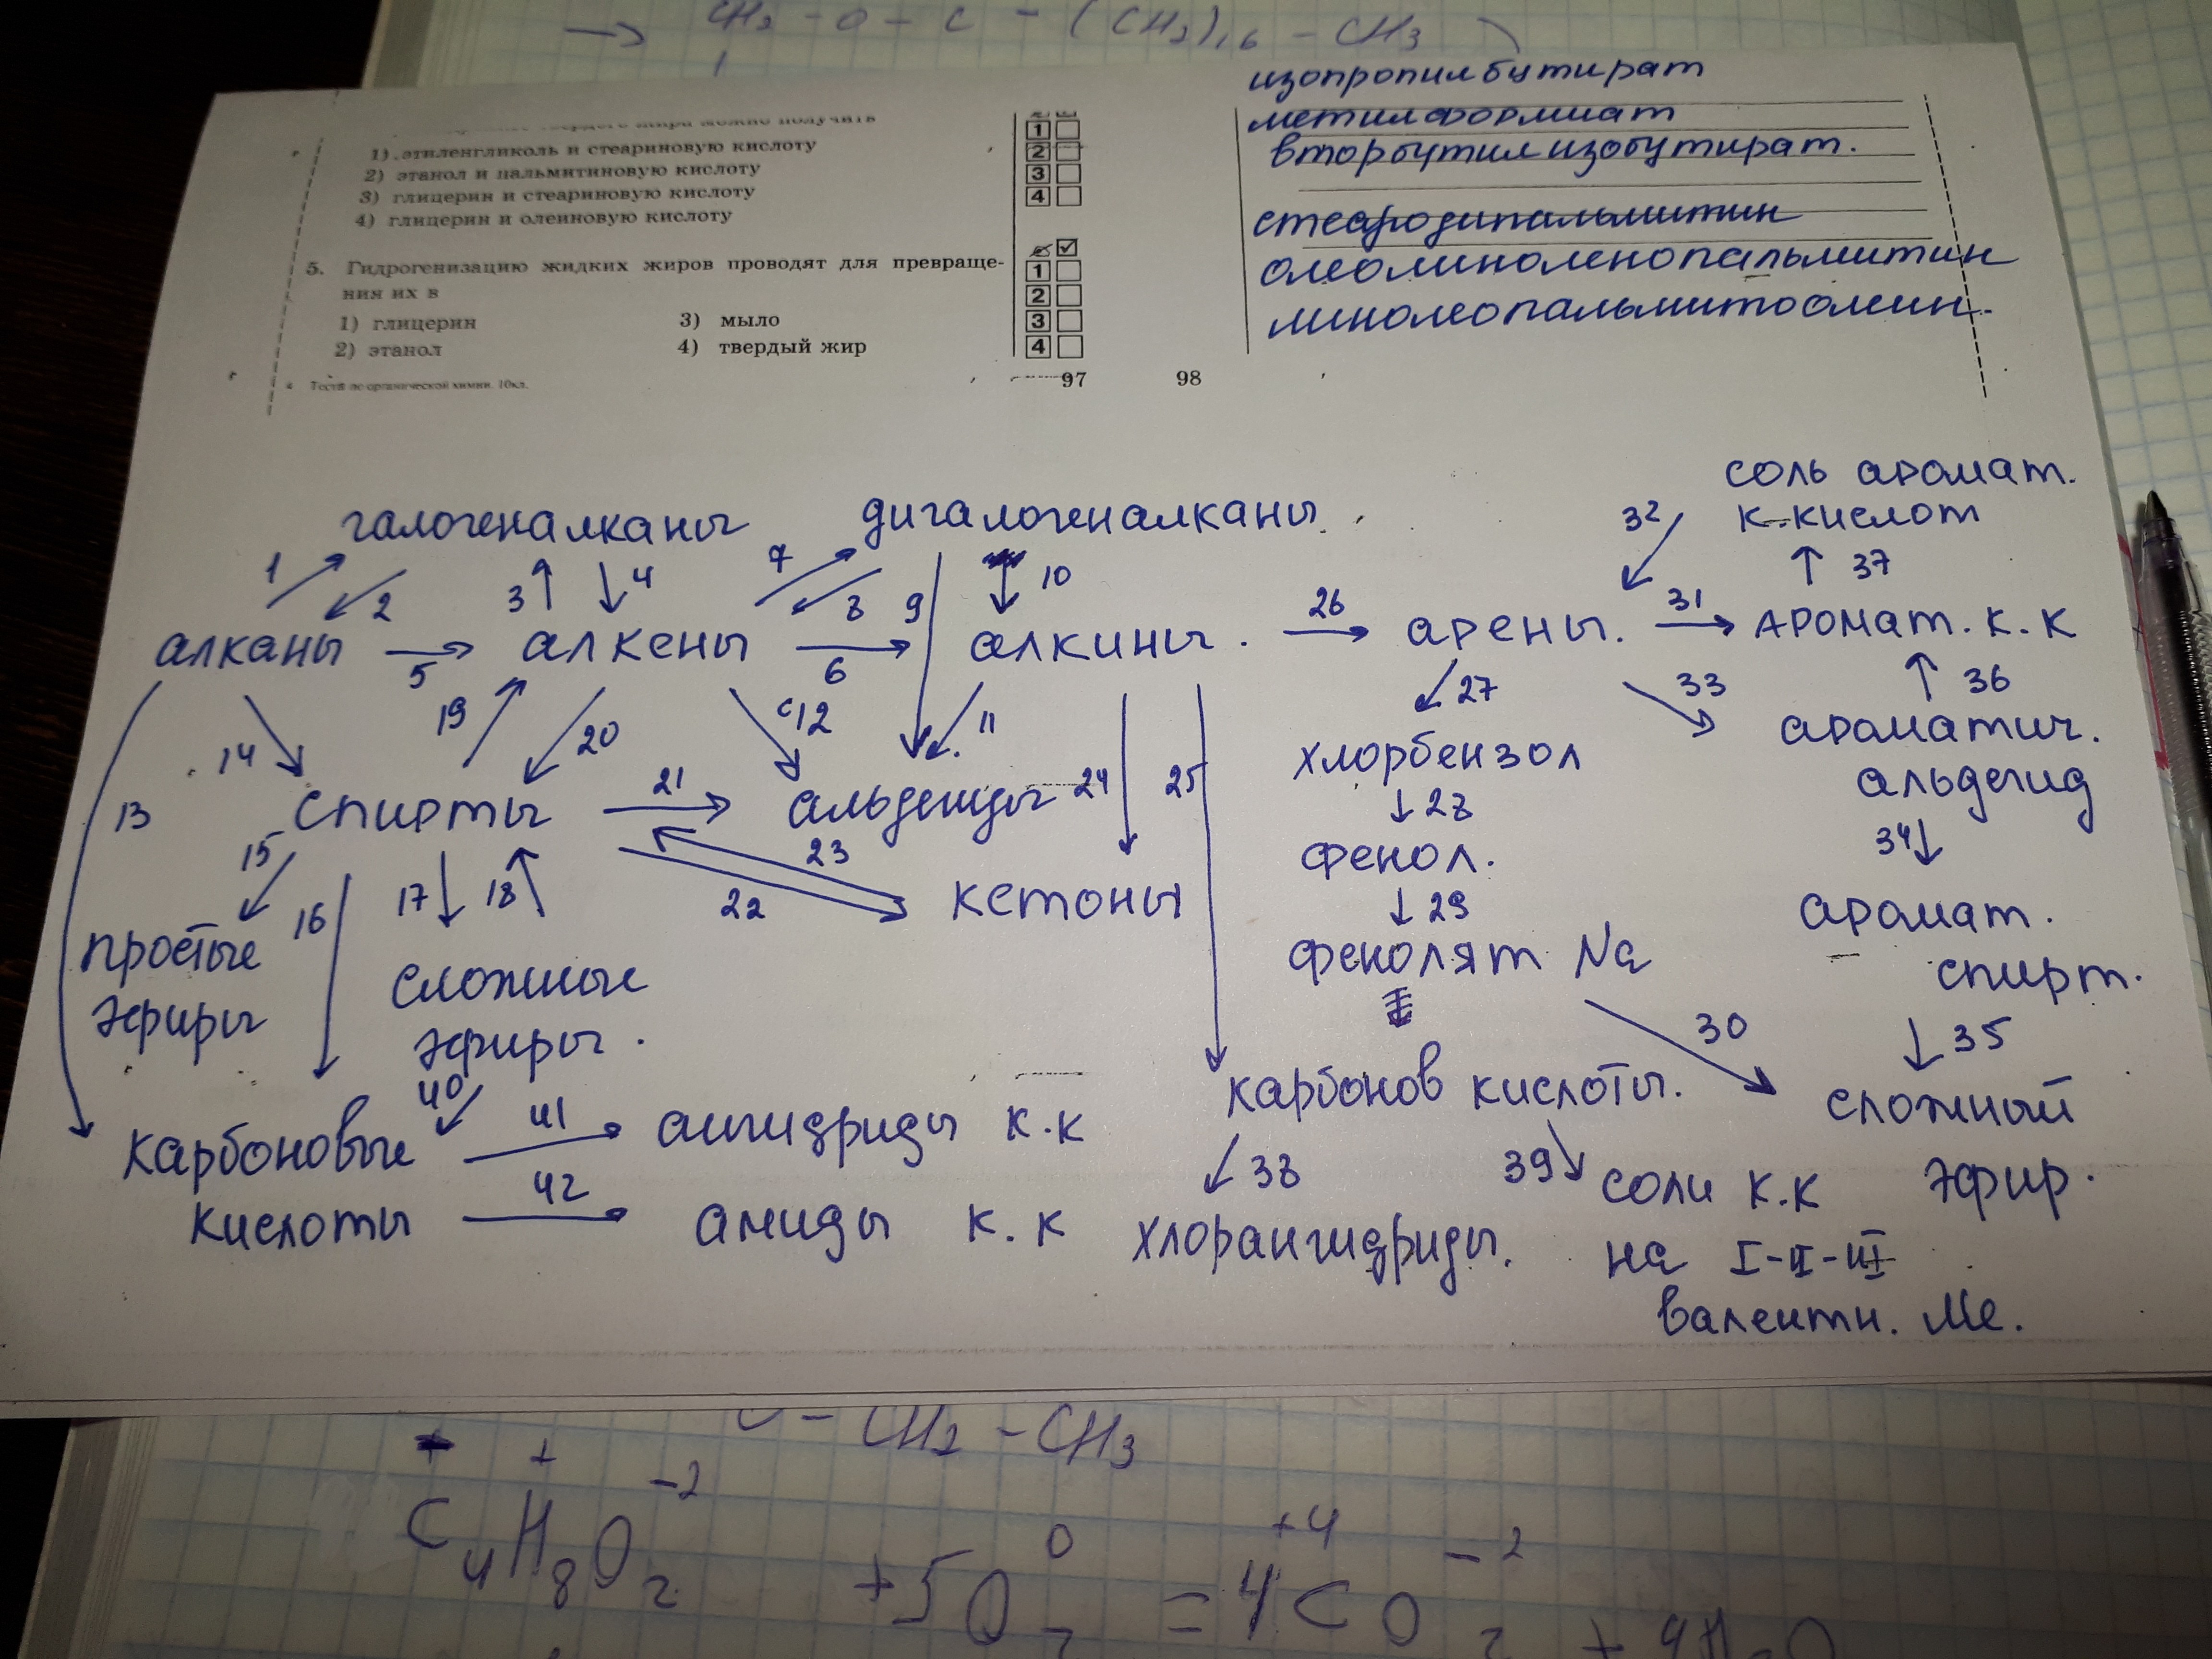 → CH₂ - O - C - (CH₂)₁₆ - CH₃
твердого жира можно получить
1) этиленгликоль и стеариновую кислоту
2) этанол и пальмитиновую кислоту
3) глицерин и стеариновую кислоту
4) глицерин и олеиновую кислоту
1
2
3
4
5. Гидрогенизацию жидких жиров проводят для превраще-
ния их в
1) глицерин 3) мыло
2) этанол 4) твердый жир
1
2
3
4
4 Тесты по органической химии. 10кл.
97
98
изопропилбутират
метилформиат
вторбутилизобутират.
стеародипальмитин
олеолиноленопальмитин
линолеопальмитоолеин.
соль аромат.
галогеналканы дигалогеналканы 32 к.кислот
1 2 3 4 7 8 9 10 37
алканы 5 алкены 6 алкины. 26 арены. 31 аромат. к.к
19 20 12 11 27 33 36
14 хлорбензол ароматич.
13 спирты 21 альдегиды 24 25 28 альдегид
15 16 17 18 23 22 фенол. 34
простые кетоны 29 аромат.
эфиры сложные фенолят Na спирт.
эфиры. 30 35
40 карбонов кислоты. сложный
карбоновые 41 ангидриды к.к 38 39 соли к.к эфир.
кислоты 42 амиды к.к хлорангидриды. на I-II-III
валентн. Ме.
O - CH₂ - CH₃
+ -2 0 +4 -2
C₄H₈O₂ + 5O₂ = 4CO₂ + 4H₂O